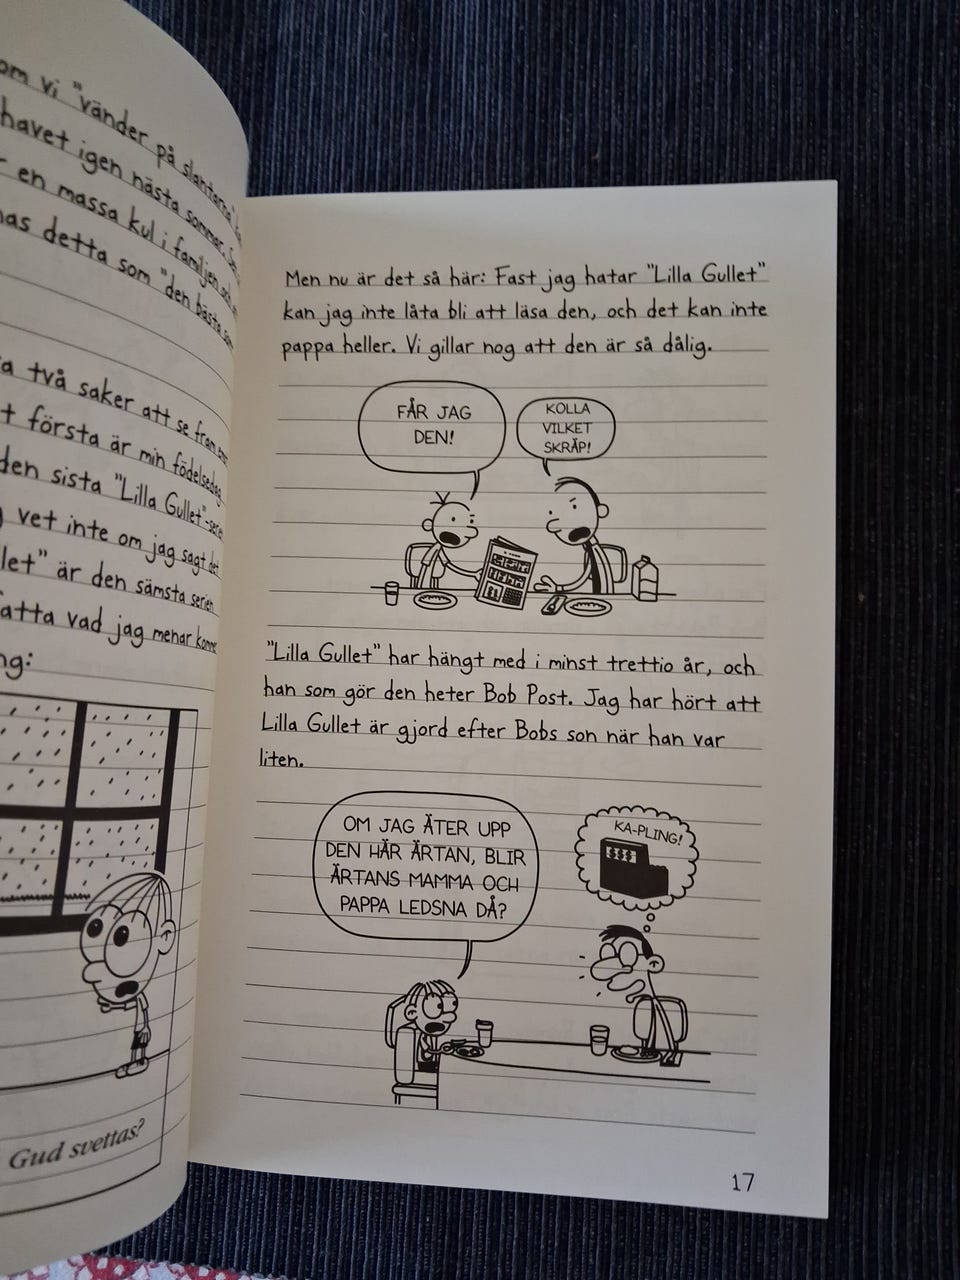 om vi "vänder på slantarna"
havet igen nästa sommar.
en massa kul i familjen och
detta som "den bästa
två saker att se fram emot
första är min födelsedag
den sista "Lilla Gullet"-serien
vet inte om jag sagt det
är den sämsta serien
fatta vad jag menar
Gud svettas?
Men nu är det så här: Fast jag hatar "Lilla Gullet"
kan jag inte låta bli att läsa den, och det kan inte
pappa heller. Vi gillar nog att den är så dålig.
FÅR JAG
DEN!
KOLLA
VILKET
SKRÄP!
"Lilla Gullet" har hängt med i minst trettio år, och
han som gör den heter Bob Post. Jag har hört att
Lilla Gullet är gjord efter Bobs son när han var
liten.
OM JAG ÄTER UPP
DEN HÄR ÄRTAN, BLIR
ÄRTANS MAMMA OCH
PAPPA LEDSNA DÅ?
KA-PLING!
$$$
17